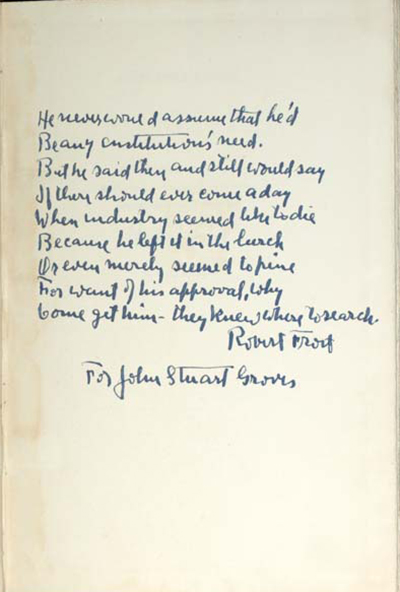 He never would assume that he'd
Be any institution's need.
But he said then and still would say
If there should ever come a day
When industry seemed like to die
Because he left it in the lurch
Or even merely seemed to pine
For want of his approval, why
Come get him - they knew where to search.
Robert Frost
For John Stuart Groves